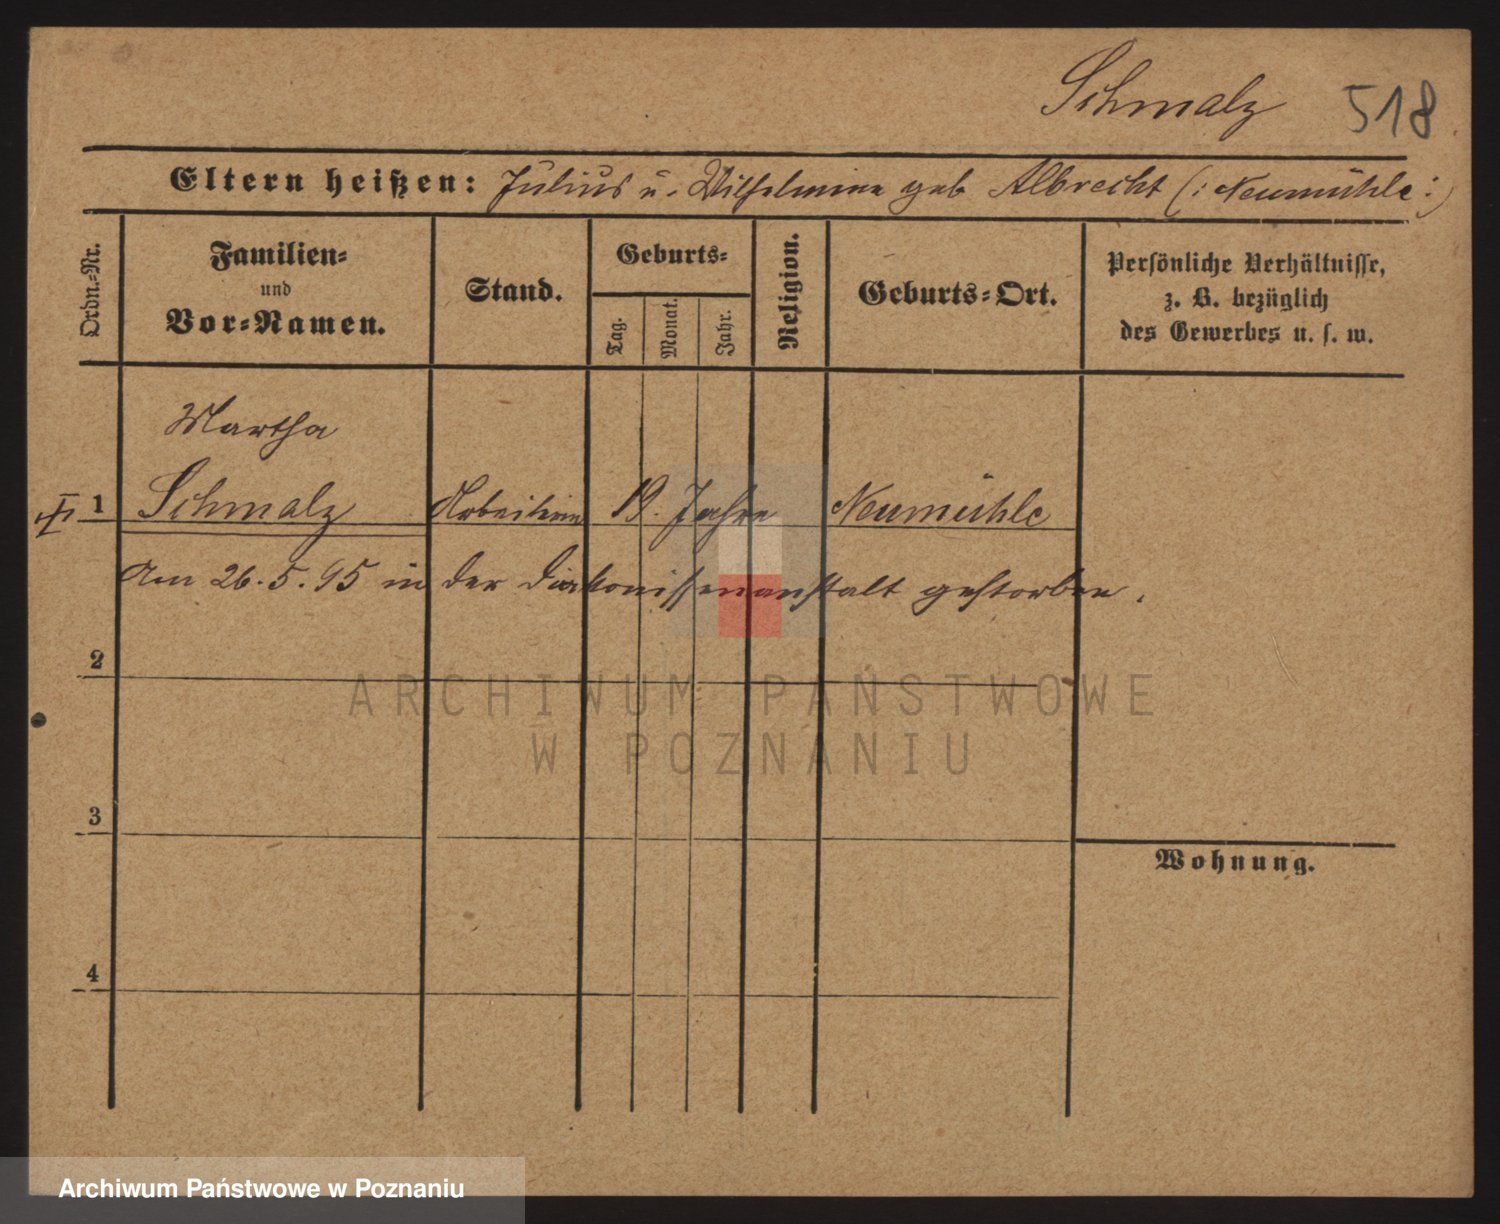 Schmalz 518
Eltern heißen: Julius u. Wilhelmine geb Albrecht (: Neumühle :)
Ordn.-Nr.
Familien-
und
Vor-Namen.
Stand.
Geburts-
Tag.
Monat.
Jahr.
Religion.
Geburts-Ort.
Persönliche Verhältnisse,
z. B. bezüglich
des Gewerbes u. s. w.
Martha
1 Schmalz Arbeiterin 19. Jahre Neumühle
Am 26.5.95 in der Diakonissenanstalt gestorben.
2
ARCHIWUM PAŃSTWOWE
W POZNANIU
3
Wohnung.
4
Archiwum Państwowe w Poznaniu